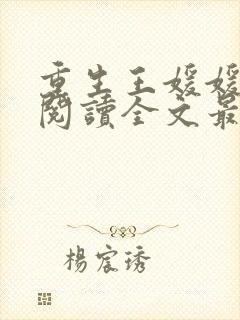 重生王媛媛
閱讀全文最
楊宸琇